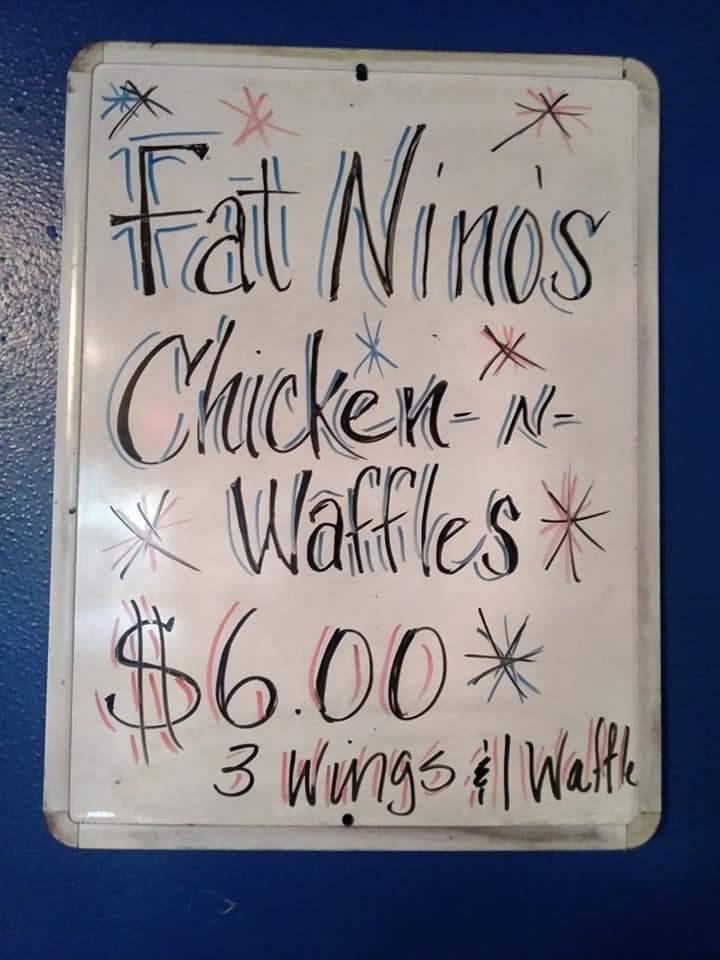 Fat Nino's
Chicken-N-
Waffles
$6.00
3 Wings & 1 Waffle